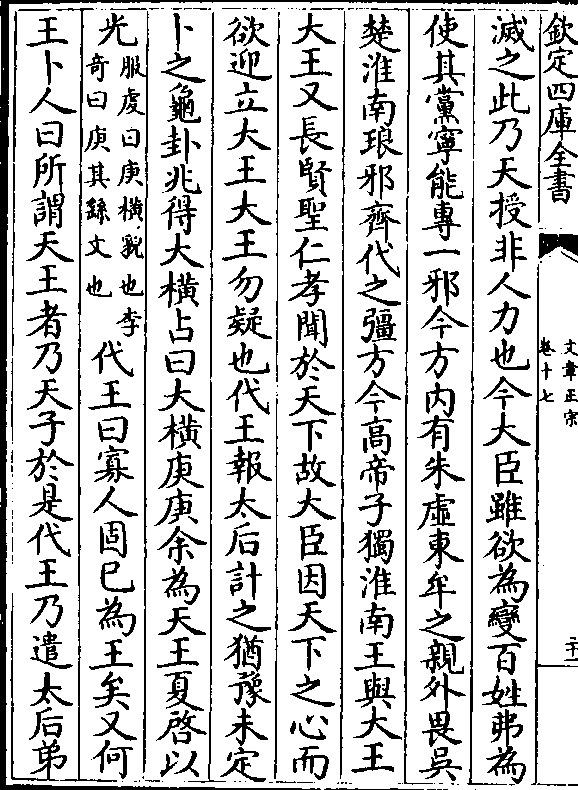 欽定四庫全書
文章正宗
卷十七
二十一
滅之此乃天授非人力也今大臣雖欲為變百姓弗為
使其黨寧能專一邪今方内有朱虛東牟之親外畏吳
楚淮南琅邪齊代之彊方今高帝子獨淮南王與大王
大王又長賢聖仁孝聞於天下故大臣因天下之心而
欲迎立大王大王勿疑也代王報太后計之猶豫未定
卜之龜卦兆得大橫占曰大橫庚庚余為天王夏啓以
光服虔曰庚橫貌也李
奇曰庚其繇文也代王曰寡人固已為王矣又何
王卜人曰所謂天王者乃天子於是代王乃遣太后弟